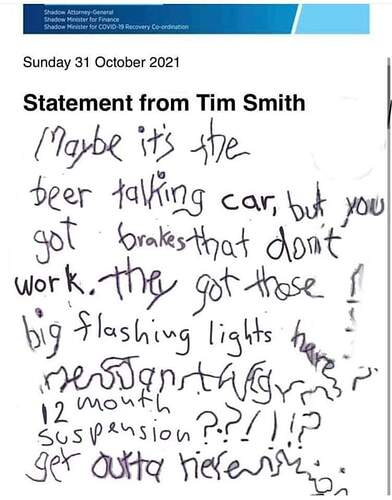 Shadow Attorney-General
Shadow Minister for Finance
Shadow Minister for COVID-19 Recovery Co-ordination
Sunday 31 October 2021
Statement from Tim Smith
Maybe it's the
beer talking car, but you
got brakes that don't
work. they got those
big flashing lights
12 month
suspension ??!!!?
get outta